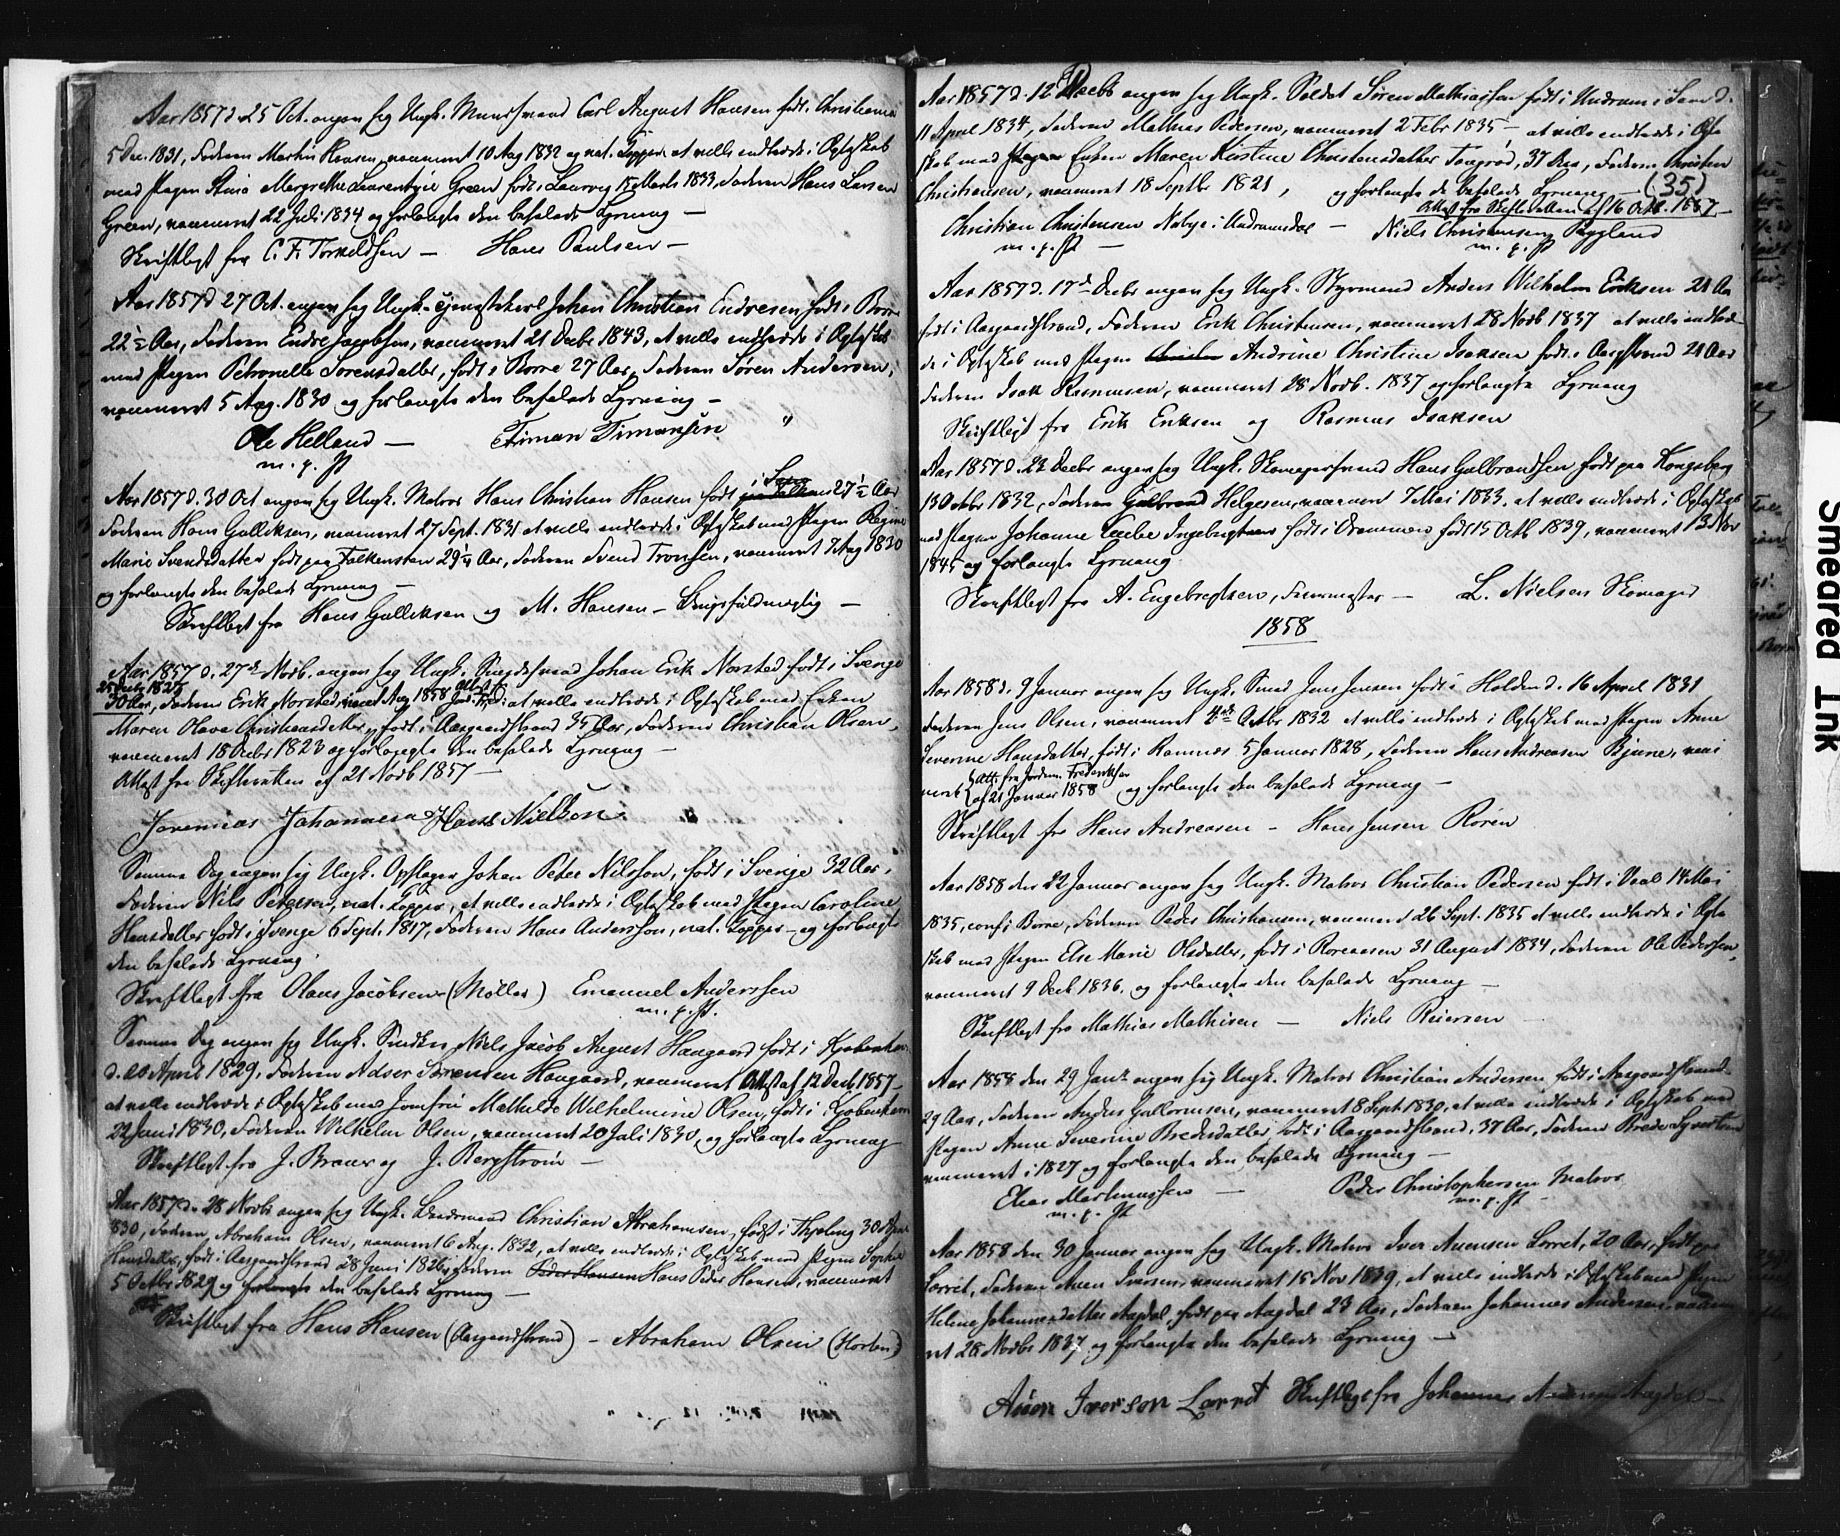 Aar 1857 d. 25 Oct. angav sig Ungk. Muursvend Carl August Hansen født i Christiania
5 Dec. 1831, Faderen Martin Hansen, vaccineret 10 Aug 1832 og nat. Kopper at ville indtræde i Ægteskab
med Pigen Stina Margrethe Laurentzie Green født i Laurvig 15 Marts 1833, Faderen Hans Larsen
Green, vaccineret 22 Juli 1834 og forlangte den befalede Lysning —
Skriftligt fra C. F. Torkeldsen — Hans Paulsen —
Aar 1857 d 27 Oct. angav sig Ungk. Tjenestekarl Johan Christian Endresen født i Borre
22½ Aar, Faderen Endre Jacobsen, vaccineret 21 Decbr 1843, at ville indtræde i Ægteskab
med Pigen Petronelle Sørensdatter, født i Borre 27 Aar, Faderen Søren Andersen,
vaccineret 5 Aug. 1830 og forlangte den befalede Lysning —
Ole Helland — Timan Timansen "
m. p. P
Aar 1857 d. 30 Oct angav sig Ungk. Matros Hans Christian Hansen født i 27½ Aar
Faderen Hans Gulliksen, vaccineret 27 Sept. 1831 at ville indtræde i Ægteskab med Pigen Regine
Marie Svendsdatter født paa Falkensten 29¼ Aar, Faderen Svend Tronsen, vaccineret 7 Aug 1830
og forlangte den befalede Lysning —
Skriftligt fra Hans Gulliksen og M. Hansen — Brugsfuldmægtig —
Aar 1857 d. 27de Novb. angav sig Ungk. Smedesvend Johan Erik Norsted født i Sverige
25 Decbr 1827
30 Aar, Faderen Erik Norsted, vaccineret Aug 1858 at ville indtræde i Ægteskab med Enken
Maren Olava Christiansdatter, født i Aasgaardstrand 35 Aar, Faderen Christian Olsen,
vaccineret 18 Octbr 1823 og forlangte den befalede Lysning —
Attest fra Skifteretten af 21 Novb 1857 —
Joremias Johannesen Hans Nielsen
Samme Dag angav sig Ungk. Opslager Johan Peter Nilsson, født i Sverige 32 Aar,
Faderen Nils Petersen, nat. Kopper, at ville indtræde i Ægteskab med Pigen Caroline
Hansdatter født i Sverige 6 Sept. 1817, Faderen Hans Andersson, nat. Kopper — og forlangte
den befalede Lysning.
Skriftligt fra Olaus Jacobsen (Møller) Emanuel Anderssen
m. p. P.
Samme Dag angav sig Ungk. Snedker Niels Jacob August Haagaard født i Kjøbenhavn
d. 20 April 1829, Faderen Adser Sørensen Haagaard, vaccineret Attest af 12 Decb 1857 —
at ville indtræde i Ægteskab med Jomfru Mathilde Wilhelmine Olsen, født i Kjøbenhavn
22 Juni 1830, Faderen Wilhelm Olsen, vaccineret 20 Juli 1830, og forlangte Lysning
Skriftligt fra J. Braur og J. Bergstrøm —
Aar 1857 d. 28 Novbr angav sig Ungk. Christian Abrahamsen, født i Thjølling 30 Apr
1830, Faderen Abraham Olsen, vaccineret 6 Aug. 1832, at ville indtræde i Ægteskab med Pigen Sophie
Hansdatter, født i Aasgaardstrand 28 Juni 1826, Faderen Peder Hansen Hans Peder Hansen, vaccineret
5 Octbr 1829 og forlangte den befalede Lysning —
Skriftligt fra Hans Hansen (Aasgaardstrand) — Abraham Olsen (Horten)
Aar 1857 d. 12 Decbr angav sig Ungk. Soldat Søren Mathiassen født i Undrum i Sem d.
11 April 1834, Faderen Mathias Pedersen, vaccineret 2 Febr 1835 — at ville indtræde i Ægte
skab med Pigen Enken Maren Kirstine Christensdatter Tangrød, 37 Aar, Faderen Christen
Christensen, vaccineret 18 Septbr 1821, og forlangte de befalede Lysning — (35)
Attest fra Skifteretten af 16 Octb. 1857
Christian Christensen Nøbye i Undrumdal — Niels Christensen Rygland
m. p. P — m. p. P
Aar 1857 d. 17de Decbr angav sig Ungk. Styrmand Anders Wilhelm Eriksen 21 Aar
født i Aasgaardstrand, Faderen Erik Christensen, vaccineret 28 Novb 1837 at ville indtræ-
de i Ægteskab med Pigen Andrine Christine Isaksen født i Aasgstrand 21 Aar
Faderen Isak Rasmusen, vaccineret 28 Novb. 1837 og forlangte Lysning
Skriftligt fra Erik Eriksen og Rasmus Isaksen
Aar 1857 d. 22 Decbr angav sig Ungk. Skomagersvend Hans Gulbrandsen født paa Kongsberg
13 Octbr 1832, Faderen Gulbrand Helgesen, vaccineret 7 Mai 1833, at ville indtræde i Ægteskab
med Pigen Johanne Ingebrigtsen født i Drammen født 15 Octb 1839, vaccineret 13 Nov
1845 og forlangte Lysning
Skriftligt fra A. Engebregtsen, — L. Nielsen Skomager
1858
Aar 1858 d. 9 Januar angav sig Ungk. Smed Jens Jensen født i Holden d. 16 April 1831
Faderen Jens Olsen, vaccineret 4de Octbr 1832 at ville indtræde i Ægteskab med Pigen Anne
Severine Hansdatter, født i Ramnæs 5 Januar 1828, Faderen Hans Andreasen Bjune, vacci
neret { Att. fra Jordm. Frederiksen
af 21 Januar 1858 og forlangte den befalede Lysning —
Skriftligt fra Hans Andreasen — Hans Jensen Røren
Aar 1858 den 22 Januar angav sig Ungk. Matros Christian Pedersen født i Vaal 14 Mai
1835, conf. i Borre, Faderen Peder Christiansen, vaccineret 26 Sept. 1835 at ville indtræde i Ægte
skab med Pigen Else Marie Olsdatter, født i 31 August 1834, Faderen Ole Pedersen,
vaccineret 9 Decb 1836, og forlangte den befalede Lysning —
Skriftligt fra Mathias Mathisen — Niels Reiersen —
Aar 1858 den 29 Januar angav sig Ungk. Matros Christian Andersen født i Aasgaardstrand
29 Aar, Faderen Anders Gullormsen, vaccineret 8 Sept 1830, at ville indtræde i Ægteskab med
Pigen Anne Severine Bredesdatter født i Aasgaardstrand, 37 Aar, Faderen Brede Syvertsen
vaccineret i 1827 og forlangte den befalede Lysning —
Elias Marthinussen — Peder Christophersen Matros
m. p. P — m. p. P —
Aar 1858 den 30 Januar angav sig Ungk. Matros Iver Auensen Lørret, 20 Aar, født paa
Lørret, Faderen Auen Iversen, vaccineret 15 Nov 1839, at ville indtræde i Ægteskab med Pigen
Helene Johannesdatter Augdal, født paa Augdal 23 Aar, Faderen Johannes Andersen, vaccine
ret 28 Novbr 1837 og forlangte den befalede Lysning —
Auen Iverson Lørret Skriftligt fra Johannes Andersen Augdal —
Smeared Ink